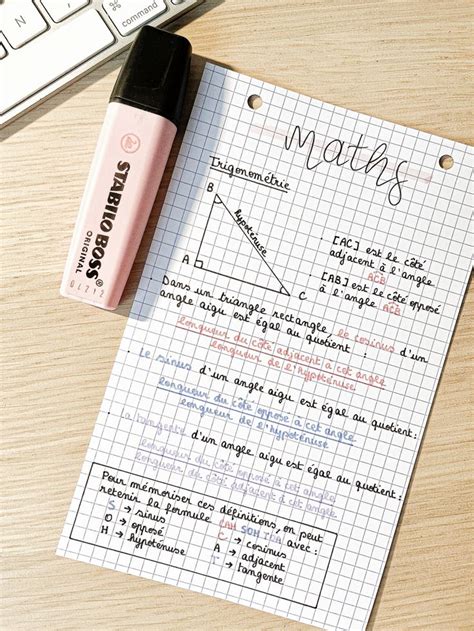 STABILO BOSS
ORIGINAL
maths
Trigonométrie
B
hypoténuse
A
C
• [AC] est le côté
adjacent à l'angle
ACB
• [AB] est le côté opposé
à l'angle ACB
• Dans un triangle rectangle, le cosinus d'un
angle aigu est égal au quotient :
longueur du côté adjacent à cet angle
longueur de l'hypoténuse
• Le sinus d'un angle aigu est égal au quotient:
longueur du côté opposé à cet angle
longueur de l'hypoténuse
• la tangente d'un angle aigu est égal au quotient:
longueur du côté opposé à cet angle
longueur de côté adjacent à cet angle
Pour mémoriser ces définitions, on peut
retenir la formule CAH SOH TOA avec :
S → sinus
O → opposé
H → hypoténuse
C → cosinus
A → adjacent
T → tangente